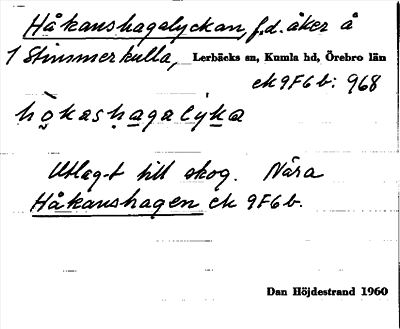 Håkanshagalyckan, f.d. åker å
1 Stimmerkulla, Lerbäcks sn, Kumla hd, Örebro län
ek 9F6b: 968
hò̤kasha̤galýka̤
Utlagt till skog. Nära
Håkanshagen ek 9F6b.
Dan Höjdestrand 1960